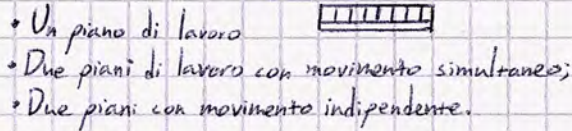 • Un piano di lavoro
• Due piani di lavoro con movimento simultaneo;
• Due piani con movimento indipendente.